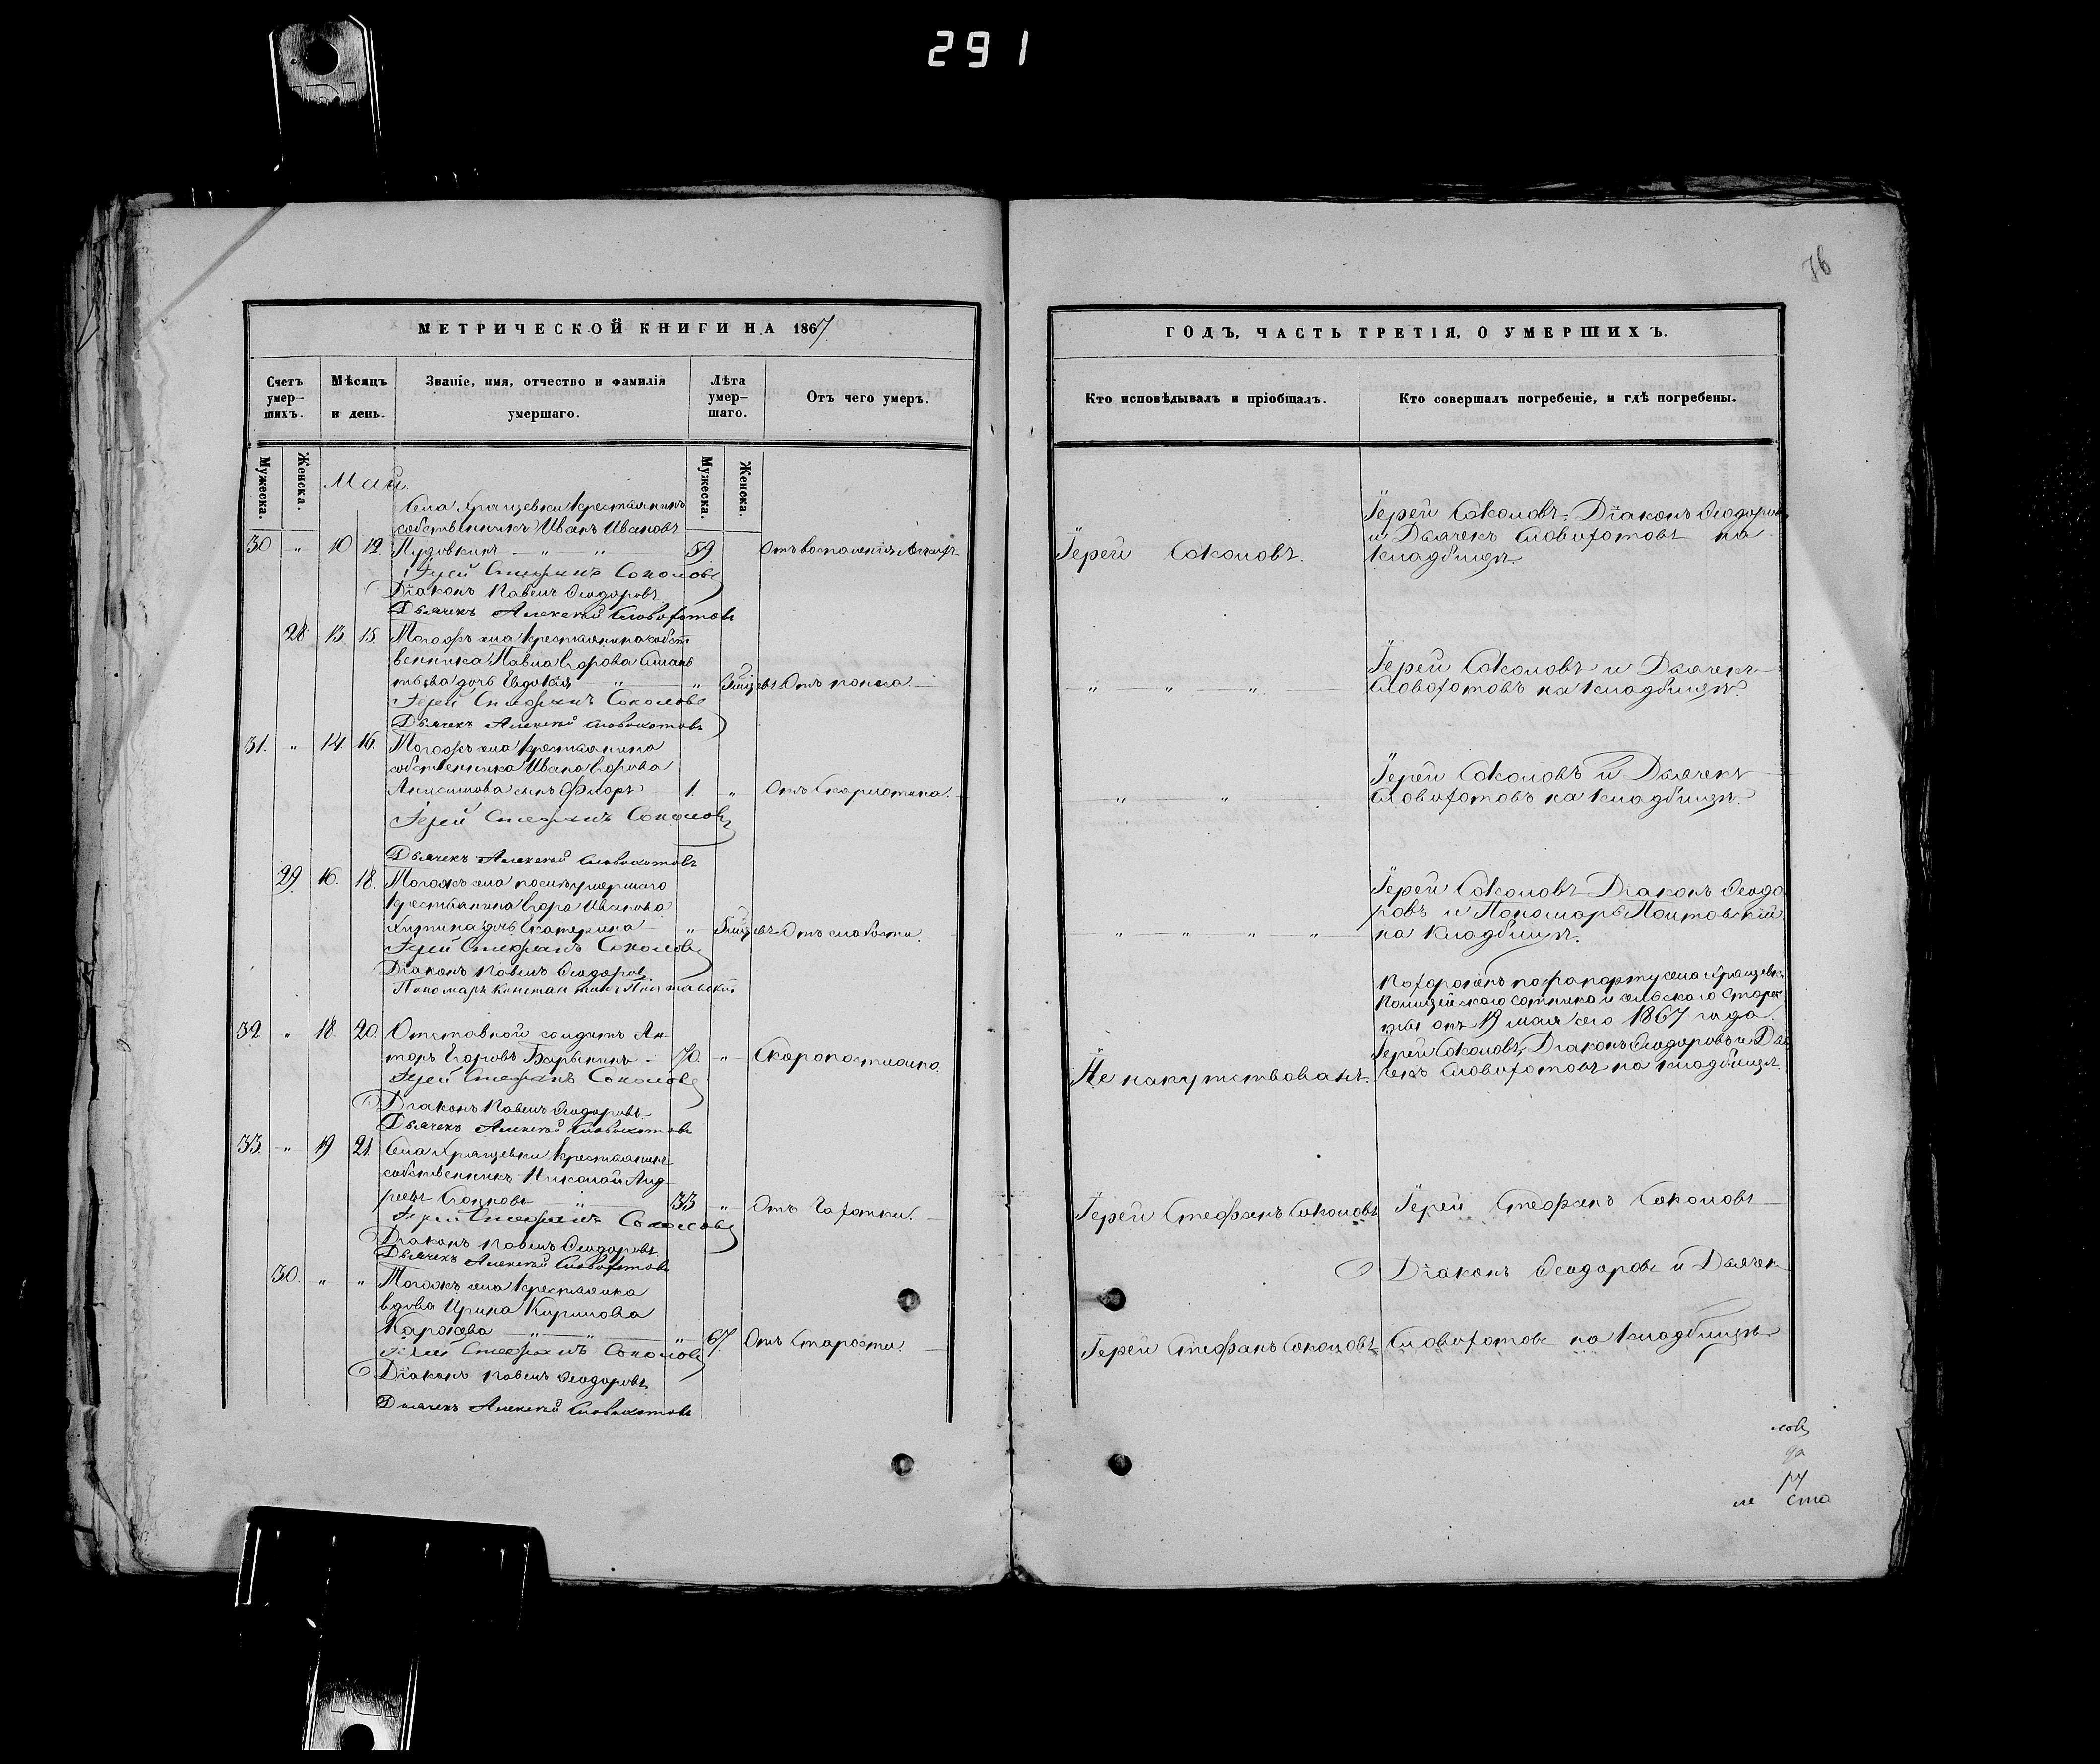 291
76
МЕТРИЧЕСКОЙ КНИГИ НА 1867.
Счетъ умер-шихъ.
Мѣсяцъ и день.
Званіе, имя, отчество и фамилія умершаго.
Лѣта умер-шаго.
Отъ чего умеръ.
Мужеска.
Женска.
Мужеска.
Женска.
Май.
Села Хрящевки крестьянинъ
собственникъ Иванъ Ивановъ
30 " 10 12. Пудовкинъ — " — " 59. Отъ воспаленія
Іерей Стефанъ Соколовъ
Діаконъ Павелъ Ѳеодоровъ
Дьячекъ Алексѣй Словохотовъ
28 13 15 Тогожъ села крестьянина собст
венника Павла Егорова
дочь Евдокія — " — " Отъ поноса.
Іерей Стефанъ Соколовъ
Дьячекъ Алексѣй Словохотовъ
31. " 14 16. Тогожъ села крестьянина
собственника Ивана Егорова
Анисимова сынъ Флоръ 1. " Отъ Скарлатина.
Іерей Стефанъ Соколовъ
Дьячекъ Алексѣй Словохотовъ
29. 16. 18. Тогожъ села послѣ умершаго
крестьянина Егора Иванова
дочь Екатерина " Отъ слабости.
Іерей Стефанъ Соколовъ
Діаконъ Павелъ Ѳеодоровъ
Пономарь Константинъ Полтавскій
32 " 18. 20. Отставной солдатъ Ан-
тонъ Егоровъ Барыкинъ — 70. " Скоропостижно.
Іерей Стефанъ Соколовъ
Діаконъ Павелъ Ѳеодоровъ.
Дьячекъ Алексѣй Словохотовъ
33. " 19 21. Села Хрящевки крестьянинъ
собственникъ Николай Анд-
реевъ 33 " Отъ Чахотки.
Іерей Стефанъ Соколовъ
Діаконъ Павелъ Ѳеодоровъ.
Дьячекъ Алексѣй Словохотовъ
30. " " Тогожъ села крестьянка
вдова Ирина Кирилова
" — " — " 67. Отъ Старости.
Іерей Стефанъ Соколовъ
Діаконъ Павелъ Ѳеодоровъ
Дьячекъ Алексѣй Словохотовъ
ГОДЪ, ЧАСТЬ ТРЕТІЯ, О УМЕРШИХЪ.
Кто исповѣдывалъ и пріобщалъ.
Кто совершалъ погребеніе, и гдѣ погребены.
Іерей Соколовъ, Діаконъ Ѳеодоровъ
и Дьячекъ Словохотовъ на
Іерей Соколовъ. кладбищѣ.
Іерей Соколовъ и Дьячекъ
" — " — " Словохотовъ на кладбищѣ.
Іерей Соколовъ и Дьячекъ
" " Словохотовъ на кладбищѣ.
Іерей Соколовъ Діаконъ Ѳеодо
ровъ и Пономарь Полтавскій
" " " " на кладбищѣ.
Похороненъ по рапорту села Хрящевки
Полицейскаго сотника и сельскаго Старос
ты отъ 19 мая сего 1867 года.
Іерей Соколовъ, Діаконъ Ѳеодоровъ и Дья
Не напутствованъ. чекъ Словохотовъ на кладбищѣ.
Іерей Стефанъ Соколовъ Іерей Стефанъ Соколовъ
Діаконъ Ѳеодоровъ и Дьячекъ
Іерей Стефанъ Соколовъ Словохотовъ на кладбищѣ
ловъ
да
ру
ле ста